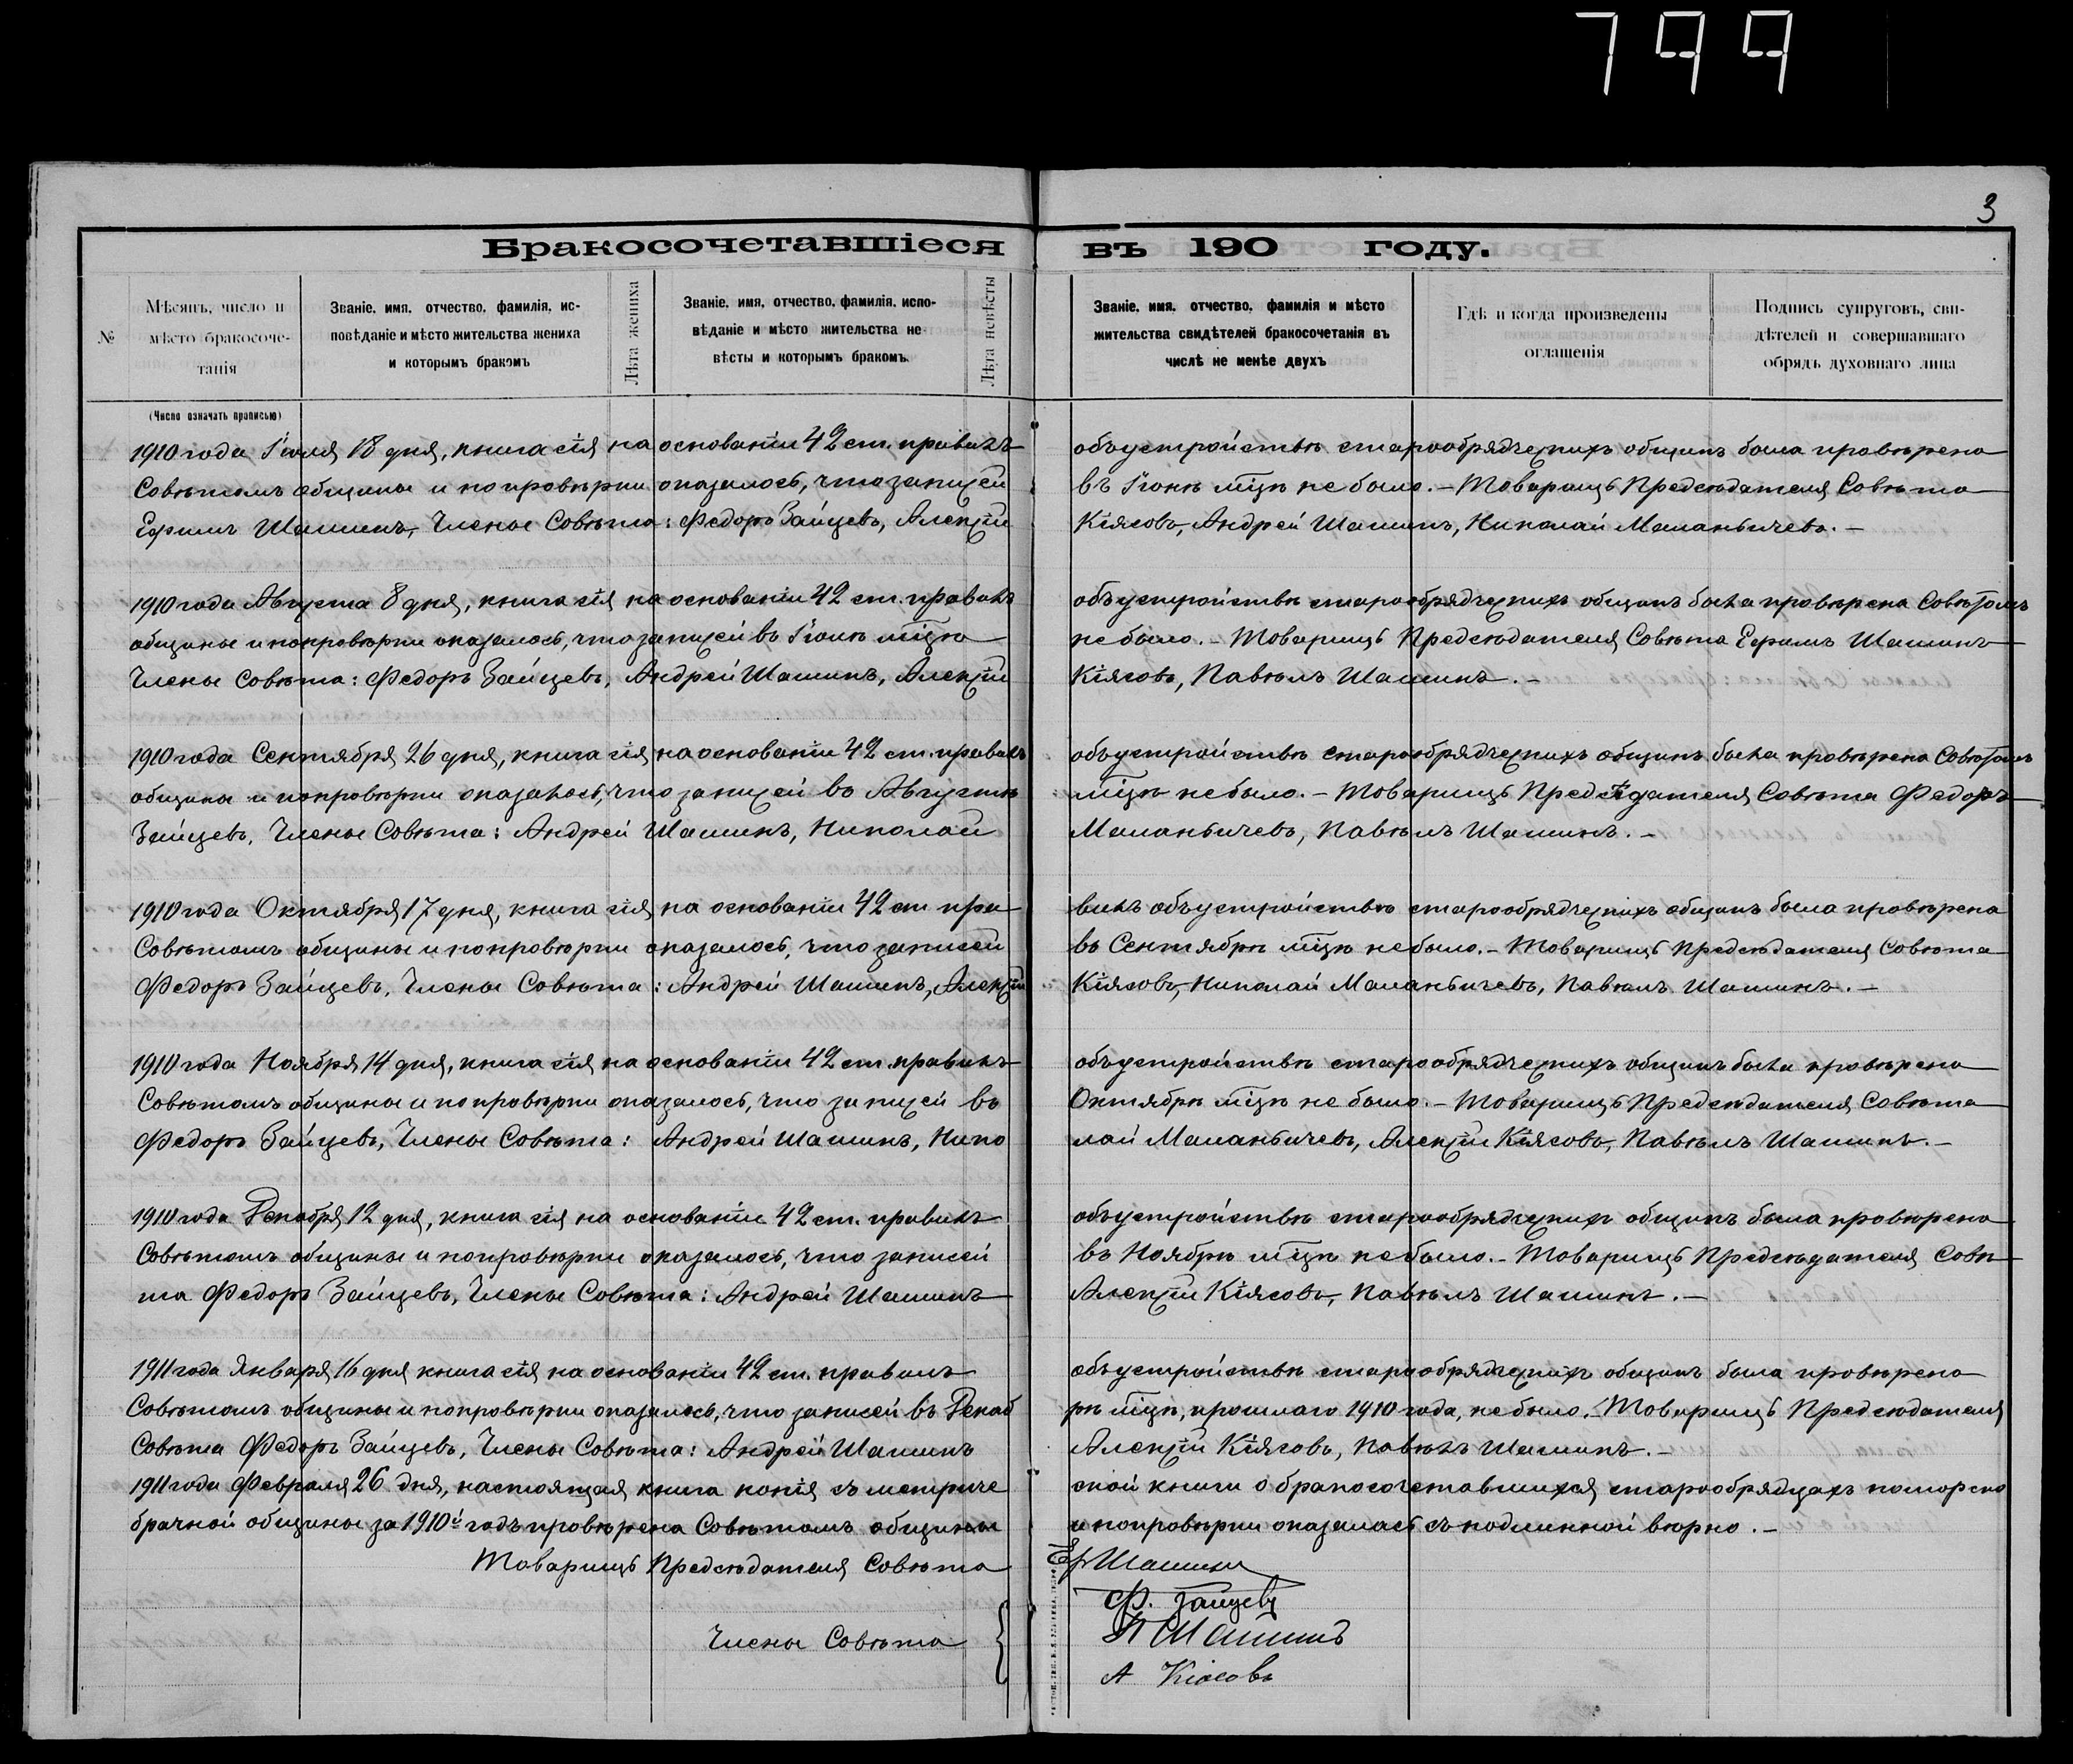 799
3
Бракосочетавшіеся въ 190 году.
№
Мѣсяцъ, число и
мѣсто бракосоче-
танія
Званіе, имя, отчество, фамилія, ис-
повѣданіе и мѣсто жительства жениха
и которымъ бракомъ
Лѣта жениха
Званіе, имя, отчество, фамилія, испо-
вѣданіе и мѣсто жительства не-
вѣсты и которымъ бракомъ.
Лѣта невѣсты
Званіе, имя, отчество, фамилія и мѣсто
жительства свидѣтелей бракосочетанія въ
числѣ не менѣе двухъ
Гдѣ и когда произведены
оглашенія
Подпись супруговъ, сви-
дѣтелей и совершавшаго
обрядъ духовнаго лица
(Число означать прописью)
1910 года Іюля 18 дня, книга сія на основаніи 42 ст. правилъ объ устройствѣ старообрядческихъ общинъ была провѣрена
Совѣтомъ общины и по провѣрки оказалось, что записей въ Іюнѣ мѣцѣ не было. – Товарищъ Предсѣдателя Совѣта
Ефимъ Шашинъ, Члены Совѣта: Федоръ Зайцевъ, Алексѣй Кіясовъ, Андрей Шашинъ, Николай Маланьичевъ. –
1910 года Августа 8 дня, книга сія на основаніи 42 ст. правилъ объ устройствѣ старообрядческихъ общинъ была провѣрена Совѣтомъ
общины и по провѣрки оказалось, что записей въ Іюлѣ мѣцѣ не было. – Товарищъ Предсѣдателя Совѣта Ефимъ Шашинъ
Члены Совѣта: Федоръ Зайцевъ, Андрей Шашинъ, Алексѣй Кіясовъ, Павѣлъ Шашинъ. –
1910 года Сентября 26 дня, книга сія на основаніи 42 ст. правилъ объ устройствѣ старообрядческихъ общинъ была провѣрена Совѣтомъ
общины и по провѣрки оказалось, что записей въ Августѣ мѣцѣ не было. – Товарищъ Предсѣдателя Совѣта Федоръ
Зайцевъ, Члены Совѣта: Андрей Шашинъ, Николай Маланьичевъ, Павѣлъ Шашинъ. –
1910 года Октября 17 дня, книга сія на основаніи 42 ст пра вилъ объ устройствѣ старообрядческихъ общинъ была провѣрена
Совѣтомъ общины и по провѣрки оказалось, что записей въ Сентябрѣ мѣцѣ не было. – Товарищъ Предсѣдателя Совѣта
Федоръ Зайцевъ, Члены Совѣта: Андрей Шашинъ, Алексѣй Кіясовъ, Николай Маланьичевъ, Павѣлъ Шашинъ. –
1910 года Ноября 14 дня, книга сія на основаніи 42 ст. правилъ объ устройствѣ старообрядческихъ общинъ была провѣрена
Совѣтомъ общины и по провѣрки оказалось, что записей въ Октябрѣ мѣцѣ не было. – Товарищъ Предсѣдателя Совѣта
Федоръ Зайцевъ, Члены Совѣта: Андрей Шашинъ, Нико лай Маланьичевъ, Алексѣй Кіясовъ, Павѣлъ Шашинъ. –
1910 года Декабря 12 дня, книга сія на основаніи 42 ст. правилъ объ устройствѣ старообрядческихъ общинъ была провѣрена
Совѣтомъ общины и по провѣрки оказалось, что записей въ Ноябрѣ мѣцѣ не было. – Товарищъ Предсѣдателя Совѣ
та Федоръ Зайцевъ, Члены Совѣта: Андрей Шашинъ Алексѣй Кіясовъ, Павѣлъ Шашинъ. –
1911 года Января 16 дня книга сія на основаніи 42 ст. правилъ объ устройствѣ старообрядческихъ общинъ была провѣрена
Совѣтомъ общины и по провѣрки оказалось, что записей въ Декаб рѣ мѣцѣ, прошлаго 1910 года, не было. – Товарищъ Предсѣдателя
Совѣта Федоръ Зайцевъ, Члены Совѣта: Андрей Шашинъ Алексѣй Кіясовъ, Павѣлъ Шашинъ. –
1911 года Февраля 26 дня, настоящая книга копія съ метриче ской книги о бракосочетавшихся старообрядцахъ поморско
брачной общины за 1910й годъ провѣрена Совѣтомъ общины и по провѣрки оказалась съ подлинной вѣрно. –
Товарищъ Предсѣдателя Совѣта Еф Шашинъ
Члены Совѣта
Ф. Зайцевъ
П Шашинъ
А Кіясовъ